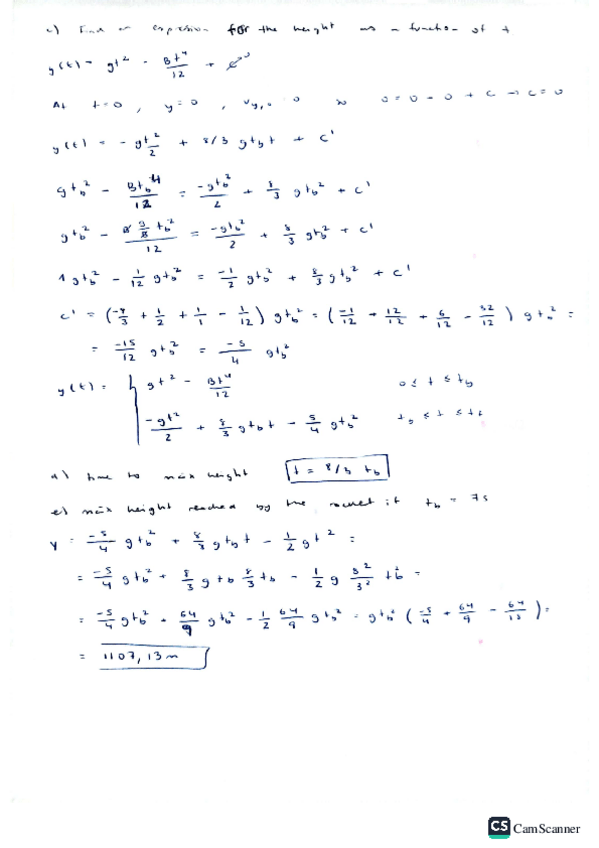 c) Find an expression for the height as a function of t
y(t) = gt² - Bt⁴/12 + C⁰
At t=0, y=0, vy,0 = 0 so 0=0-0+C → C=0
y(t) = -gt²/2 + 8/3 g tb t + C'
gtb² - Btb⁴/12 = -gtb²/2 + 8/3 gtb² + C'
gtb² - tb²/12 = -gtb²/2 + 8/3 gtb² + C'
1gtb² - 1/12 gtb² = -1/2 gtb² + 8/3 gtb² + C'
C' = (-8/3 + 1/2 + 1/1 - 1/12) gtb² = (-1/12 + 12/12 + 6/12 - 32/12) gtb² =
= -15/12 gtb² = -5/4 gtb²
y(t) = { gt² - Bt⁴/12 0 ≤ t ≤ tb
-gt²/2 + 8/3 gtbt - 5/4 gtb² tb ≤ t ≤
d) time to max height t = 8/3 tb
e) max height reached by the rocket if tb = 7s
y = -5/4 gtb² + 8/3 gtbt - 1/2 gt² =
= -5/4 gtb² + 8/3 gtb 8/3 tb - 1/2 g 8²/3² tb² =
= -5/4 gtb² + 64/9 gtb² - 1/2 64/9 gtb² = gtb² (-5/4 + 64/9 - 64/18) =
= 1107,13m
CS CamScanner